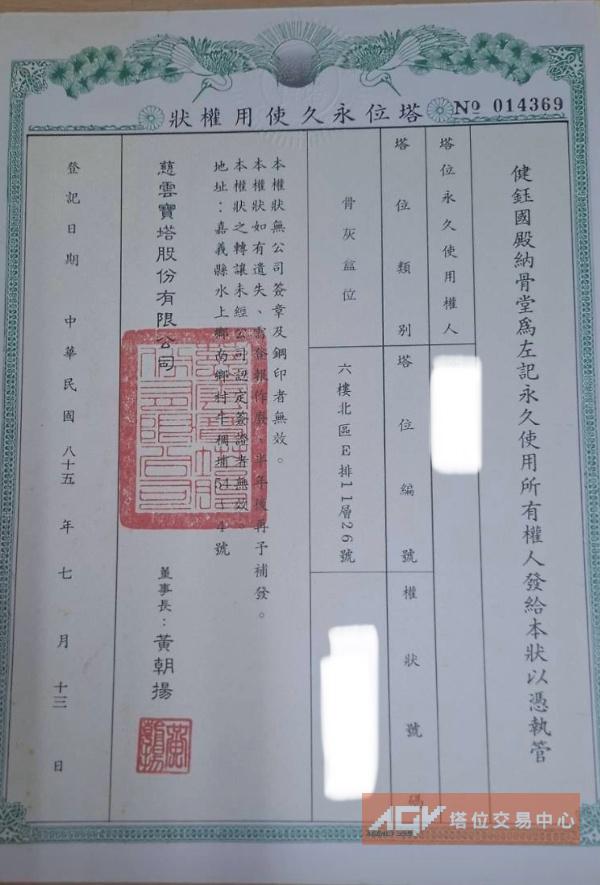 塔位永久使用權狀
№ 014369
健鈺國殿納骨堂為左記永久使用所有權人發給本狀以憑執管
塔位永久使用權人
塔位類別
塔位編號
權狀號碼
骨灰盒位
六樓北區E排11層26號
本權狀無公司簽章及鋼印者無效。
本權狀如有遺失、需登報作廢，半年後再予補發。
本權狀之轉讓未經公司認定簽證者無效
地址：嘉義縣水上鄉尚鄉村牛稠埔54-4號
慈雲寶塔股份有限公司
董事長：黃朝揚
登記日期　中華民國八十五年七月十三日
AGV 塔位交易中心